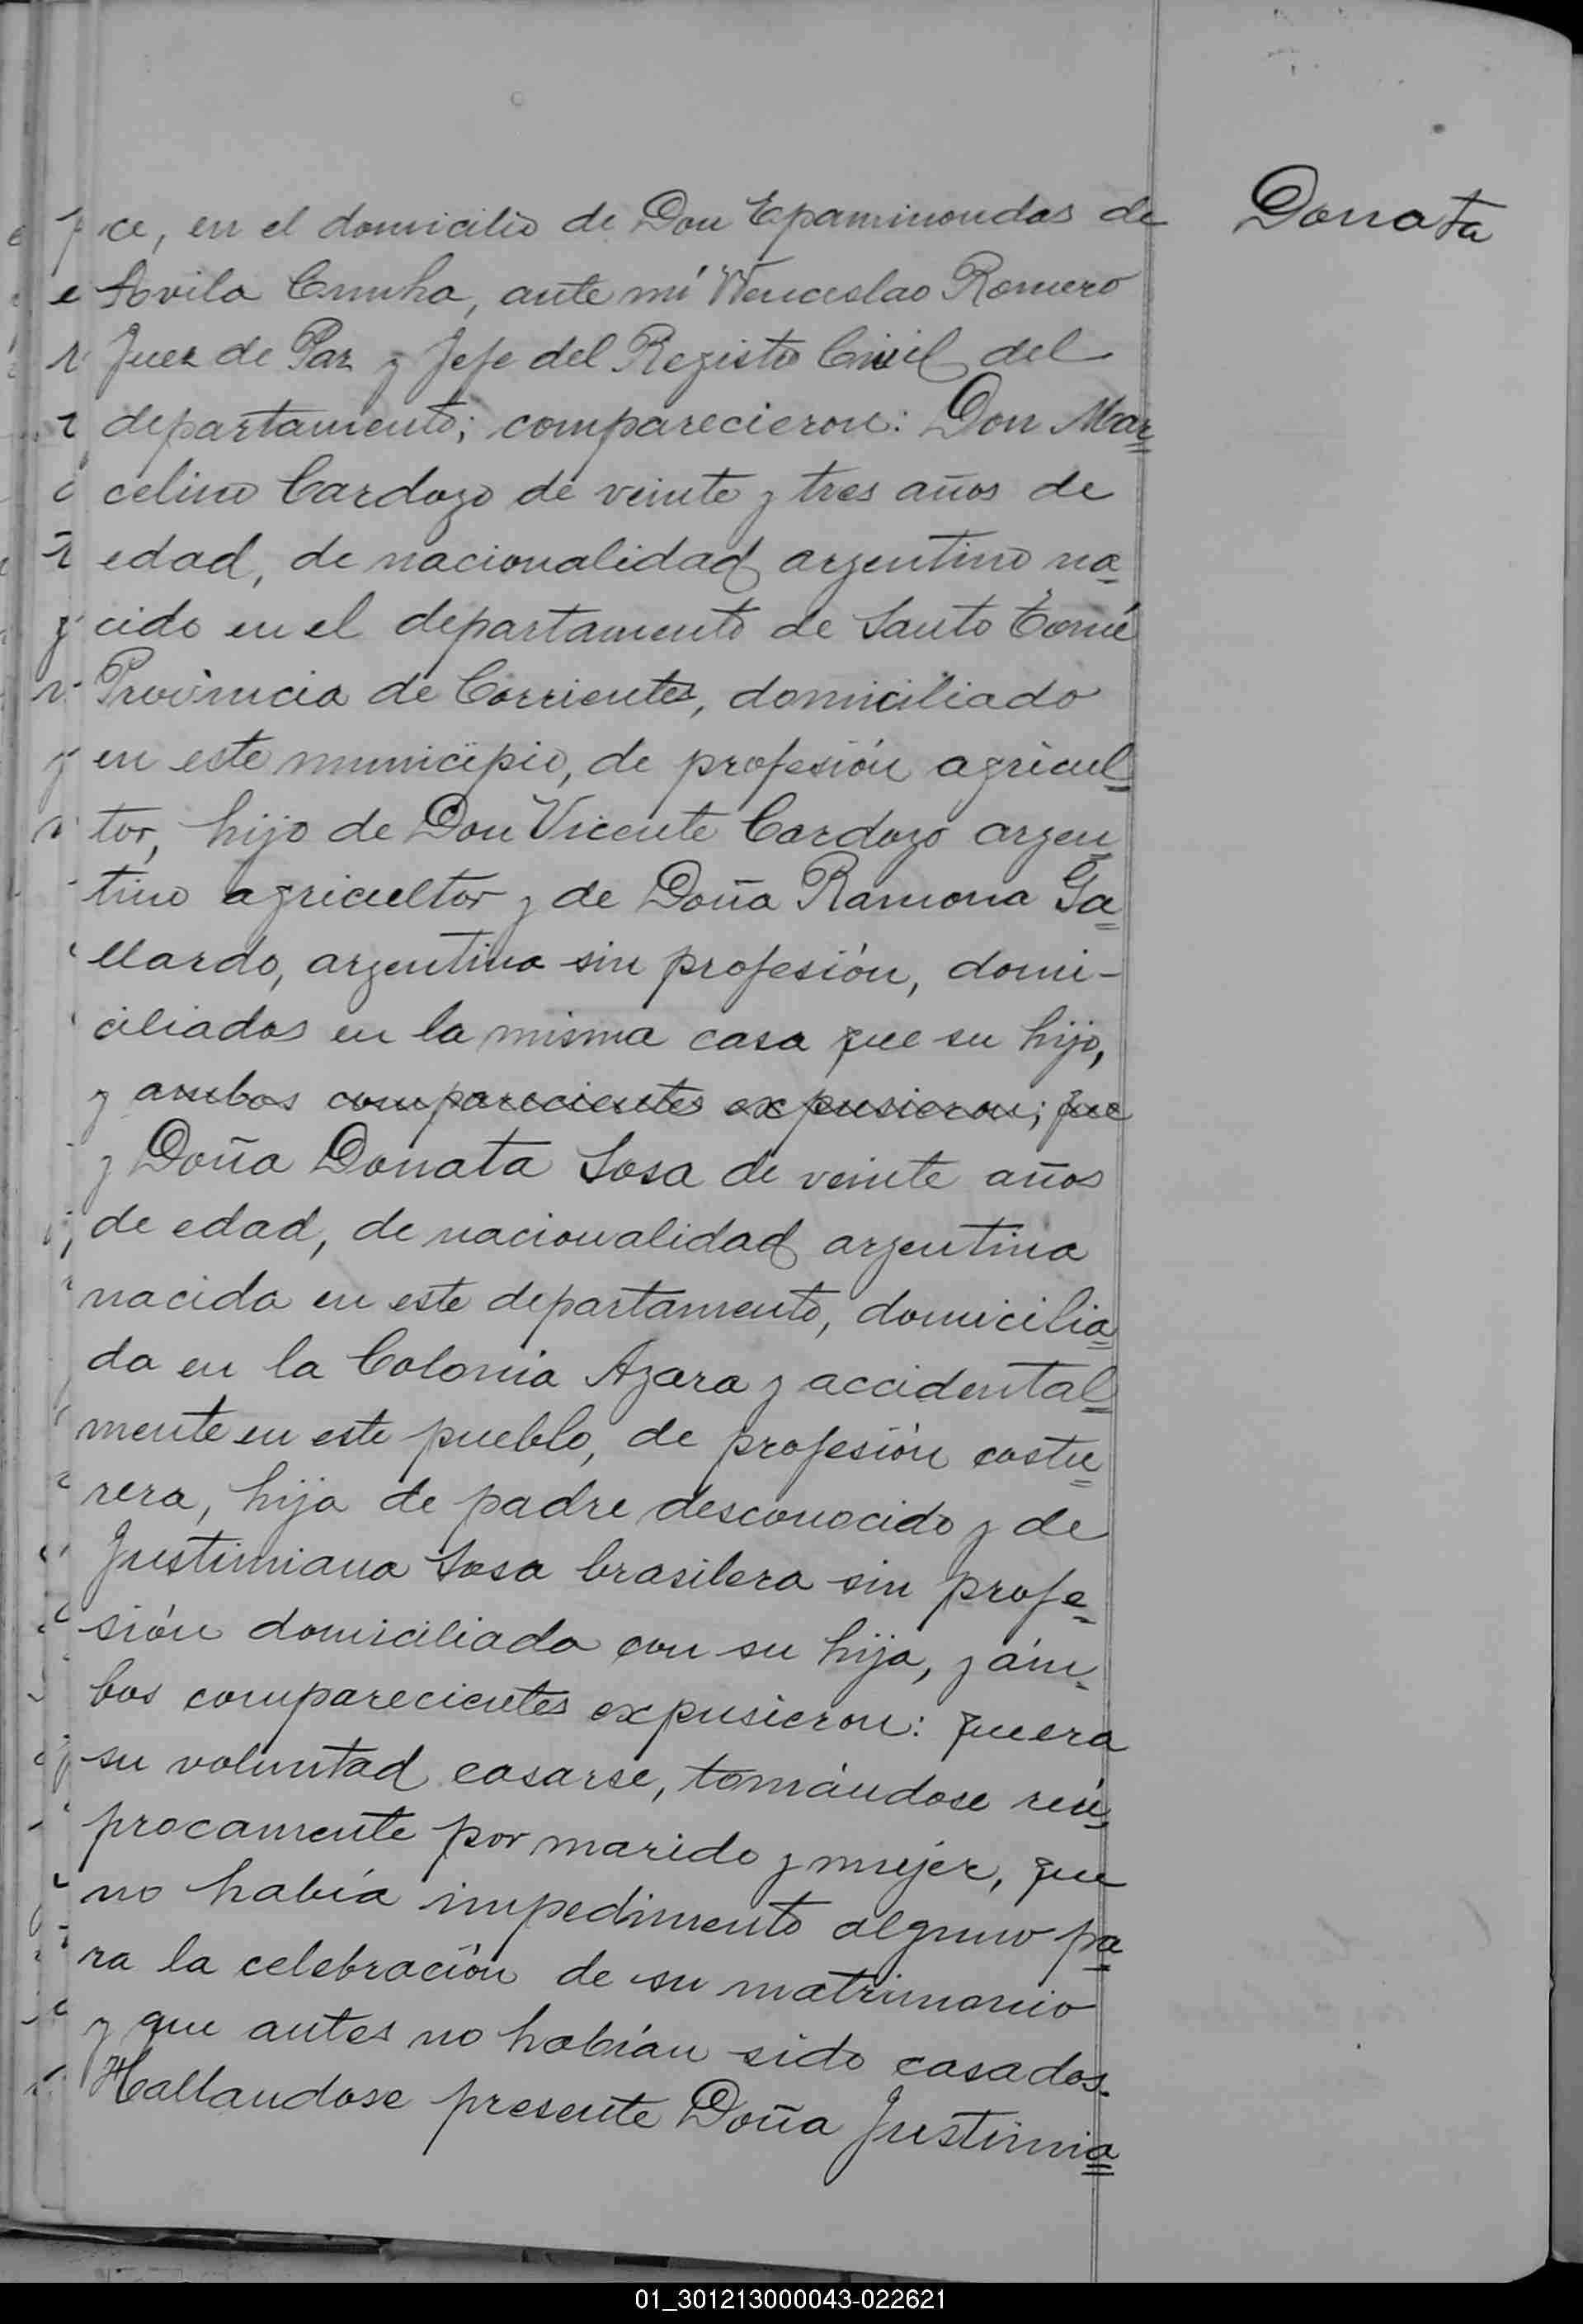 ce, en el domicilio de Don Epaminondas de
Avila Cunha, ante mí Wenceslao Romero
Juez de Paz y Jefe del Registro Civil del
departamento; comparecieron: Don Mar
celino Cardozo de veinte y tres años de
edad, de nacionalidad argentino na
cido en el departamento de Santo Tomé
Provincia de Corrientes, domiciliado
en este municipio, de profesión agricul
tor, hijo de Don Vicente Cardozo argen
tino agricultor y de Doña Ramona Ga
llardo, argentina sin profesión, domi-
ciliados en la misma casa que su hijo,
y ambos comparecientes expusieron; que
y Doña Donata Sosa de veinte años
de edad, de nacionalidad argentina
nacida en este departamento, domicilia
da en la Colonia Azara y accidental
mente en este pueblo, de profesión costu
rera, hija de padre desconocido y de
Justiniana Sosa brasilera sin profe
sión domiciliada con su hija, y ám
bos comparecientes expusieron: que era
su voluntad casarse, tomándose recí
procamente por marido y mujer, que
no había impedimento alguno pa
ra la celebración de su matrimonio
y que antes no habían sido casados.
Hallandose presente Doña Justinia
Donata
01_301213000043-022621